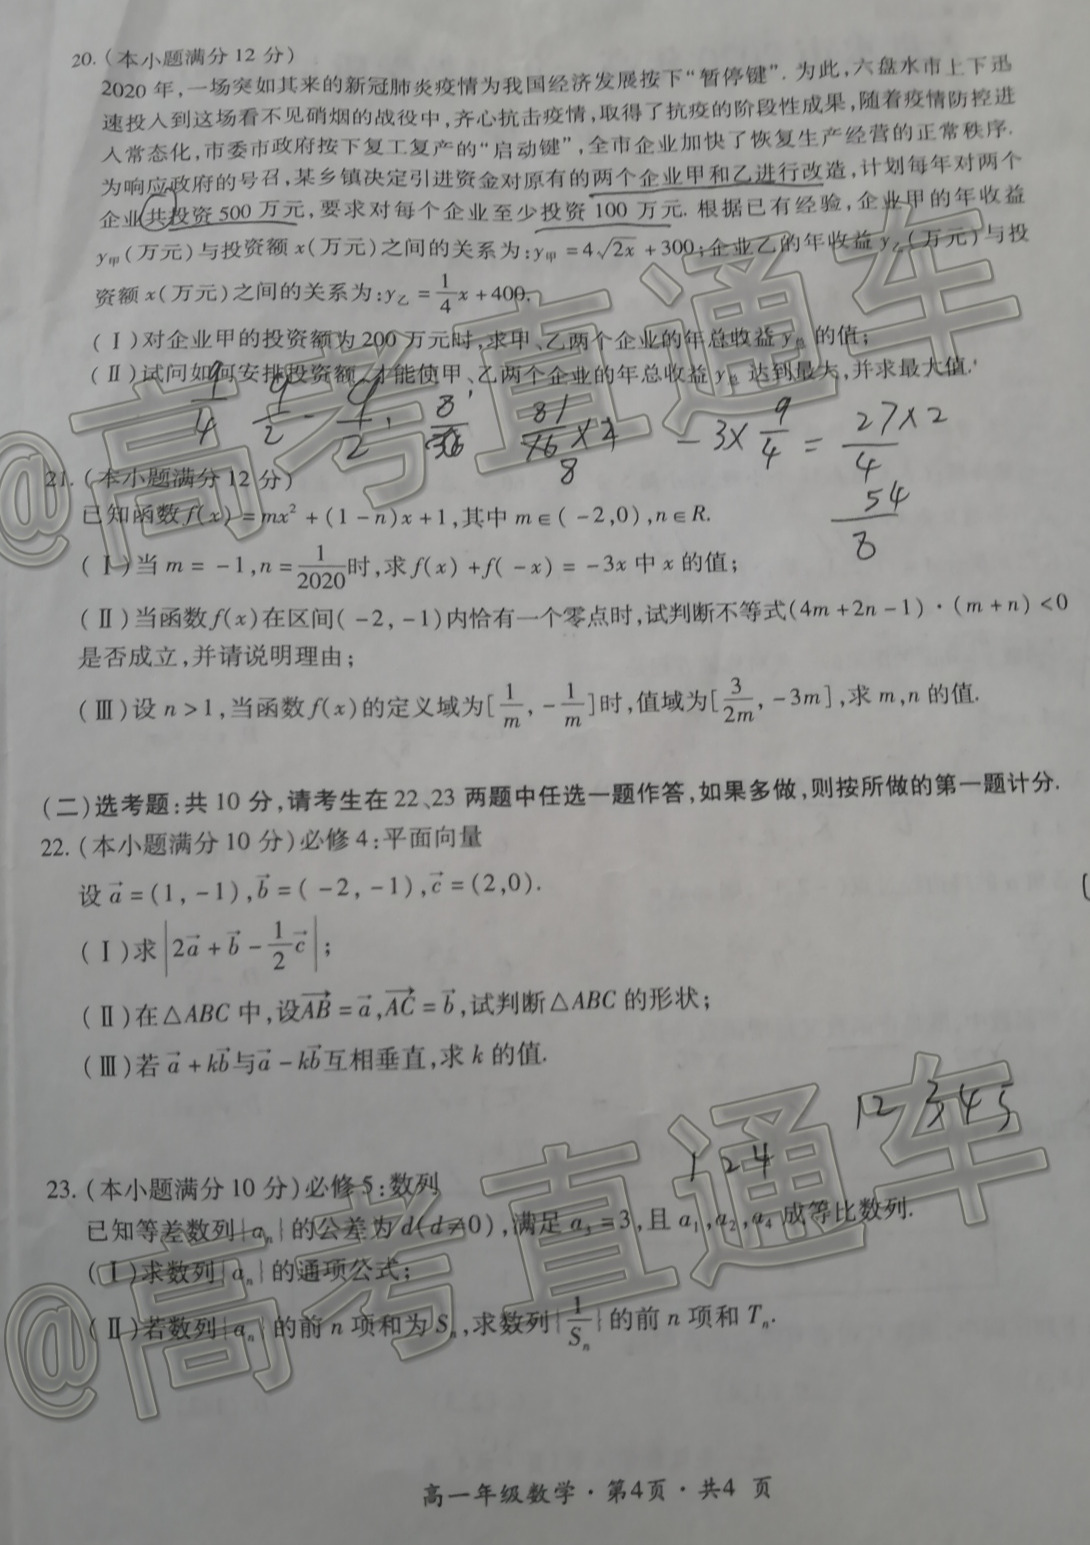 20.(本小题满分12分)
2020年,一场突如其来的新冠肺炎疫情为我国经济发展按下“暂停键”.为此,六盘水市上下迅
速投入到这场看不见硝烟的战役中,齐心抗击疫情,取得了抗疫的阶段性成果,随着疫情防控进
入常态化,市委市政府按下复工复产的“启动键”,全市企业加快了恢复生产经营的正常秩序.
为响应政府的号召,某乡镇决定引进资金对原有的两个企业甲和乙进行改造,计划每年对两个
企业共投资500万元,要求对每个企业至少投资100万元.根据已有经验,企业甲的年收益
y甲(万元)与投资额x(万元)之间的关系为:y甲=4√2x+300;企业乙的年收益y乙(万元)与投
资额x(万元)之间的关系为:y乙=1/4x+400.
(Ⅰ)对企业甲的投资额为200万元时,求甲、乙两个企业的年总收益y总的值;
(Ⅱ)试问如何安排投资额,才能使甲、乙两个企业的年总收益y总达到最大,并求最大值.
9/4 9/2 - 9/2 81/16×2 8 -3×9/4=27×2/4
54/8
21.(本小题满分12分)
已知函数f(x)=mx²+(1-n)x+1,其中m∈(-2,0),n∈R.
(Ⅰ)当m=-1,n=1/2020时,求f(x)+f(-x)=-3x中x的值;
(Ⅱ)当函数f(x)在区间(-2,-1)内恰有一个零点时,试判断不等式(4m+2n-1)·(m+n)<0
是否成立,并请说明理由;
(Ⅲ)设n>1,当函数f(x)的定义域为[1/m,-1/m]时,值域为[3/2m,-3m],求m,n的值.
(二)选考题:共10分,请考生在22、23两题中任选一题作答,如果多做,则按所做的第一题计分.
22.(本小题满分10分)必修4:平面向量
设a⃗=(1,-1),b⃗=(-2,-1),c⃗=(2,0).
(Ⅰ)求|2a⃗+b⃗-1/2c⃗|;
(Ⅱ)在△ABC中,设AB⃗=a⃗,AC⃗=b⃗,试判断△ABC的形状;
(Ⅲ)若a⃗+kb⃗与a⃗-kb⃗互相垂直,求k的值.
12345
124
23.(本小题满分10分)必修5:数列
已知等差数列{aₙ}的公差为d(d≠0),满足a₃=3,且a₁,a₂,a₄成等比数列.
(Ⅰ)求数列{aₙ}的通项公式;
(Ⅱ)若数列{aₙ}的前n项和为Sₙ,求数列{1/Sₙ}的前n项和Tₙ.
高一年级数学·第4页·共4页
@高考直通车
@高考直通车